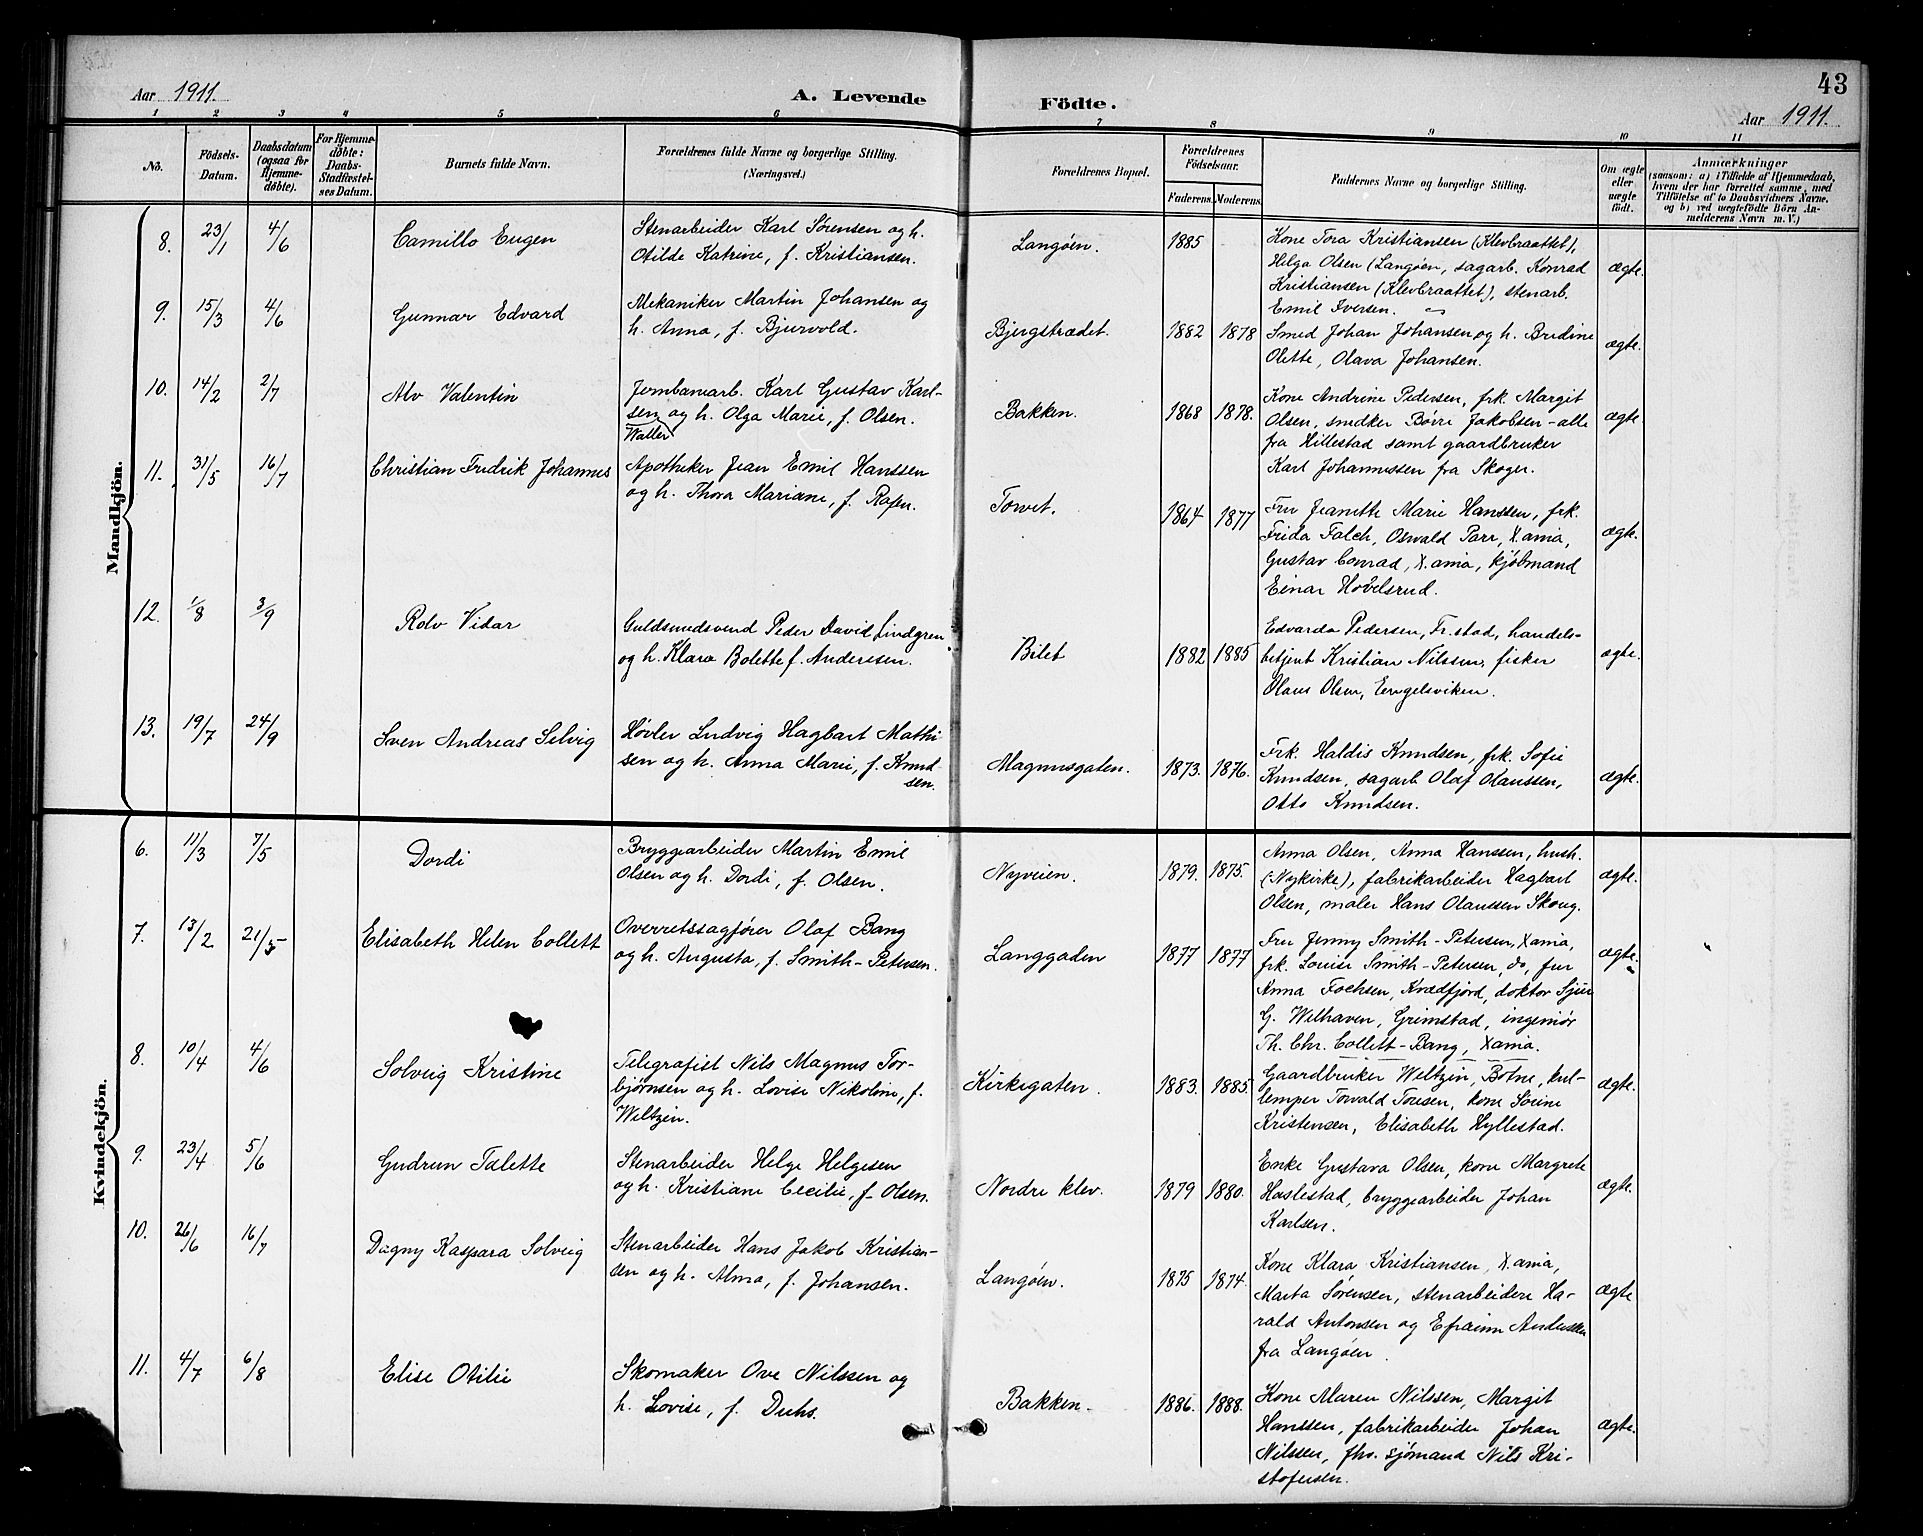 43
Aar 1911.
A. Levende Födte.
Aar 1911.
1 2 3 4 5 6 7 8 9 10 11
No. Födsels-Datum. Daabsdatum (ogsaa for Hjemmedöbte). For Hjemmedöbte: Daabs-Stadfæstelses Datum. Barnets fulde Navn. Forældrenes fulde Navne og borgerlige Stilling. (Næringsvei.) Forældrenes Bopæl. Forældrenes Födselsaar. Faderens. Moderens. Faddernes Navne og borgerlige Stilling. Om ægte eller uægte födt. Anmærkninger (saasom: a) i Tilfælde af Hjemmedaab, hvem der har forrettet samme, med Tilföielse af to Daabsvidners Navne, og b) ved uægtefödte Börn Anmelderens Navn m. V.)
Mandkjön.
8. 23/1 4/6 Camillo Eugen
Stenarbeider Karl Sørensen og h.
Otilde Katrine, f. Kristiansen.
Langøen. 1885
Kone Tora Kristiansen (Klevbraattet),
Helga Olsen (Langøen, sagarb. Konrad
Kristiansen (Klevbraattet), stenarb.
Emil Iversen.
ægte.
9. 15/3 4/6 Gunnar Edvard
Mekaniker Martin Johansen og
h. Anna, f. Bjurvold.
Bjergstrædet. 1882 1878
Smed Johan Johansen og h. Bredine
Olette, Olava Johansen.
ægte.
10. 14/2 2/7 Alv Valentin
Jernbanearb. Karl Gustav Karl-
sen og h. Olga Marie, f. Olsen.
Bakken. 1868 1878.
Kone Andrine Pedersen, frk. Margit
Olsen, snedker Børre Jakobsen - alle
fra Hillestad samt gaardbruker
Karl Johannessen fra Skoger.
ægte.
11. 31/5 16/7 Christian Fredrik Johannes
Walter
Apotheker Jean Emil Hanssen
og h. Thora Mariane, f. Rafen.
Torvet. 1864 1877
Fru Jeanette Marie Hanssen, frk.
Frida Falch, Oswald Parr, X.ania,
Gustav Conrad, X.ania, kjøbmand
Einar Hovelsrud.
ægte.
12. 1/8 3/9 Rolv Vidar
Guldsmedsvend Peder David Lindgren
og h. Klara Bolette f. Andersen.
Bilet 1882 1885
Edvarda Pedersen, Fr.stad, handels-
betjent Kristian Nilssen, fisker
Olaus Olsen, Engelsviken.
ægte.
13. 19/7 24/9 Sven Andreas Selvig
Høvler Ludvig Hagbart Mathi-
sen og h. Anna Marie, f. Knud-
sen.
Magnusgaten. 1873. 1876.
Frk. Haldis Knudsen, frk. Sofie
Knudsen, sagarb. Olaf Olaussen,
Otto Knudsen.
ægte.
Kvindekjön.
6. 11/3 7/5 Dordi
Bryggearbeider Martin Emil
Olsen og h. Dordi, f. Olsen.
Nyveien. 1879. 1875.
Anna Olsen, Anna Hanssen, hush.
(Nykirke), fabrikarbeider Hagbart
Olsen, maler Hans Olaussen Skoug.
ægte.
7. 13/2 21/5 Elisabeth Helen Collett
Overretssagfører Olaf Bang
og h. Augusta, f. Smith-Petersen.
Langgaden 1877 1877
Fru Jenny Smith-Petersen, Xania,
frk. Louise Smith-Petersen, do, fru
Anna Fochsen, Kvædfjord, doktor Sjur
G. Welhaven, Grimstad, ingeniør
Th. Chr. Collett-Bang, Xania.
ægte.
8. 10/4 4/6 Solveig Kristine
Telegrafist Nils Magnus Tor-
bjørnsen og h. Lovise Nikoline, f.
Weltzin.
Kirkegaten. 1883. 1885.
Gaardbruker Weltzin, Botne, kul-
lemper Torvald Toresen, kone Sørine
Kristensen, Elisabeth Hyllestad.
ægte.
9. 23/4 5/6 Gudrun Talette
Stenarbeider Helge Helgesen
og h. Kristiane Cecilie, f. Olsen.
Nordre klev. 1879 1880.
Enke Gustava Olsen, kone Margrete
Haslestad, bryggearbeider Johan
Karlsen.
ægte.
10. 26/6 16/7 Dagny Kaspara Solveig
Stenarbeider Hans Jakob Kristian-
sen og h. Alma, f. Johansen.
Langøen. 1875 1874.
Kone Klara Kristiansen, X.ania,
Marta Sørensen, stenarbeidere Ha-
rald Antonsen og Efraim Andersen
fra Langøen.
ægte
11. 4/7 6/8 Elise Otilie
Skomaker Ove Nilssen og
h. Lovise, f. Duhs.
Bakken. 1886. 1888.
Kone Maren Nilssen, Margit
Hanssen, fabrikarbeider Johan
Nilssen, fhv. sjømand Nils Kri-
stofersen.
ægte.